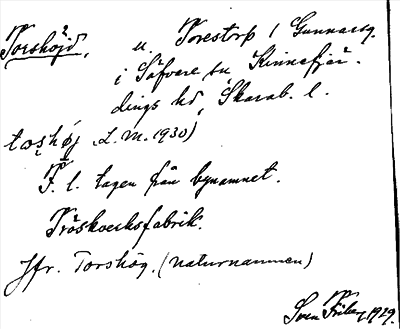 Torshöjd, u. Torestorp 1 Gunnarsg.
i Sävare sn, Kinnefjär-
dings hd, Skarab. l.
(L. M. 1930)
F. l. tagen från bynamnet.
Tröskverksfabrik.
Jfr. Torshög. (naturnamnen)
Sven 1929.